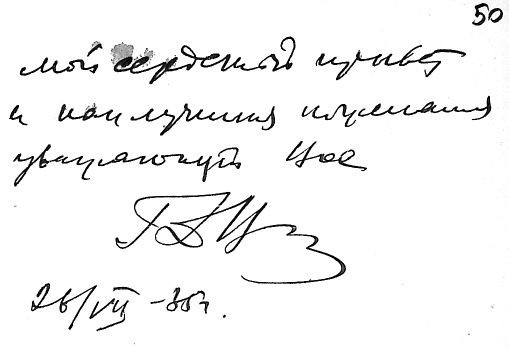 50
мой сердечный привет
и наилучшия пожелания
уважающий Вас
26/VII -35г.